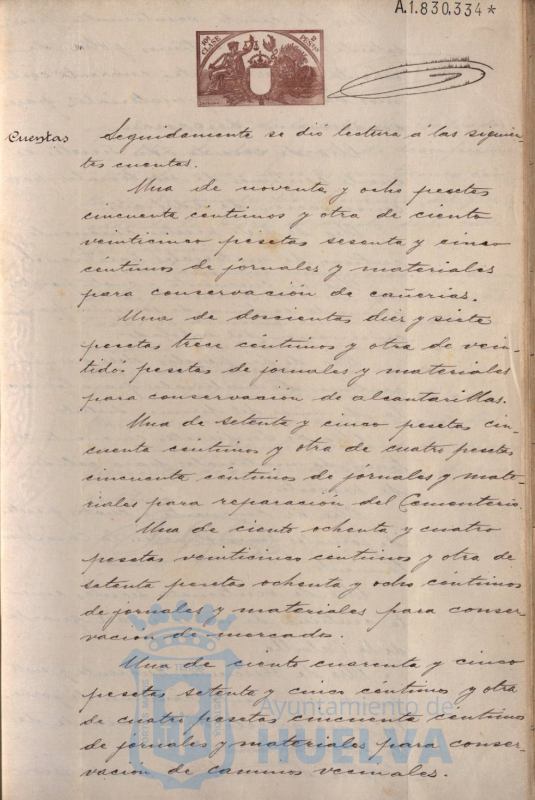 A.1.830.334*
10ª CLASE
2 Pestas
Cuentas
Seguidamente se dió lectura á las siguien-
tes cuentas.
Una de noventa y ocho pesetas
cincuenta céntimos y otra de ciento
veinticinco pesetas sesenta y cinco
céntimos de jornales y materiales
para conservación de cañerías.
Una de doscientas diez y siete
pesetas trece céntimos y otra de vein-
tidós pesetas de jornales y materiales
para conservación de alcantarillas.
Una de setenta y cinco pesetas cin-
cuenta céntimos y otra de cuatro pesetas
cincuenta céntimos de jórnales y mate-
riales para reparación del Cementerio.
Una de ciento ochenta y cuatro
pesetas veinticinco céntimos y otra de
setenta pesetas ochenta y ocho céntimos
de jornales y materiales para conser-
vación de mercados.
Una de ciento cuarenta y cinco
pesetas setenta y cinco céntimos y otra
de cuatro pesetas cincuenta céntimos
de jórnales y materiales para conser-
vación de caminos vecinales.
Ayuntamiento de
HUELVA